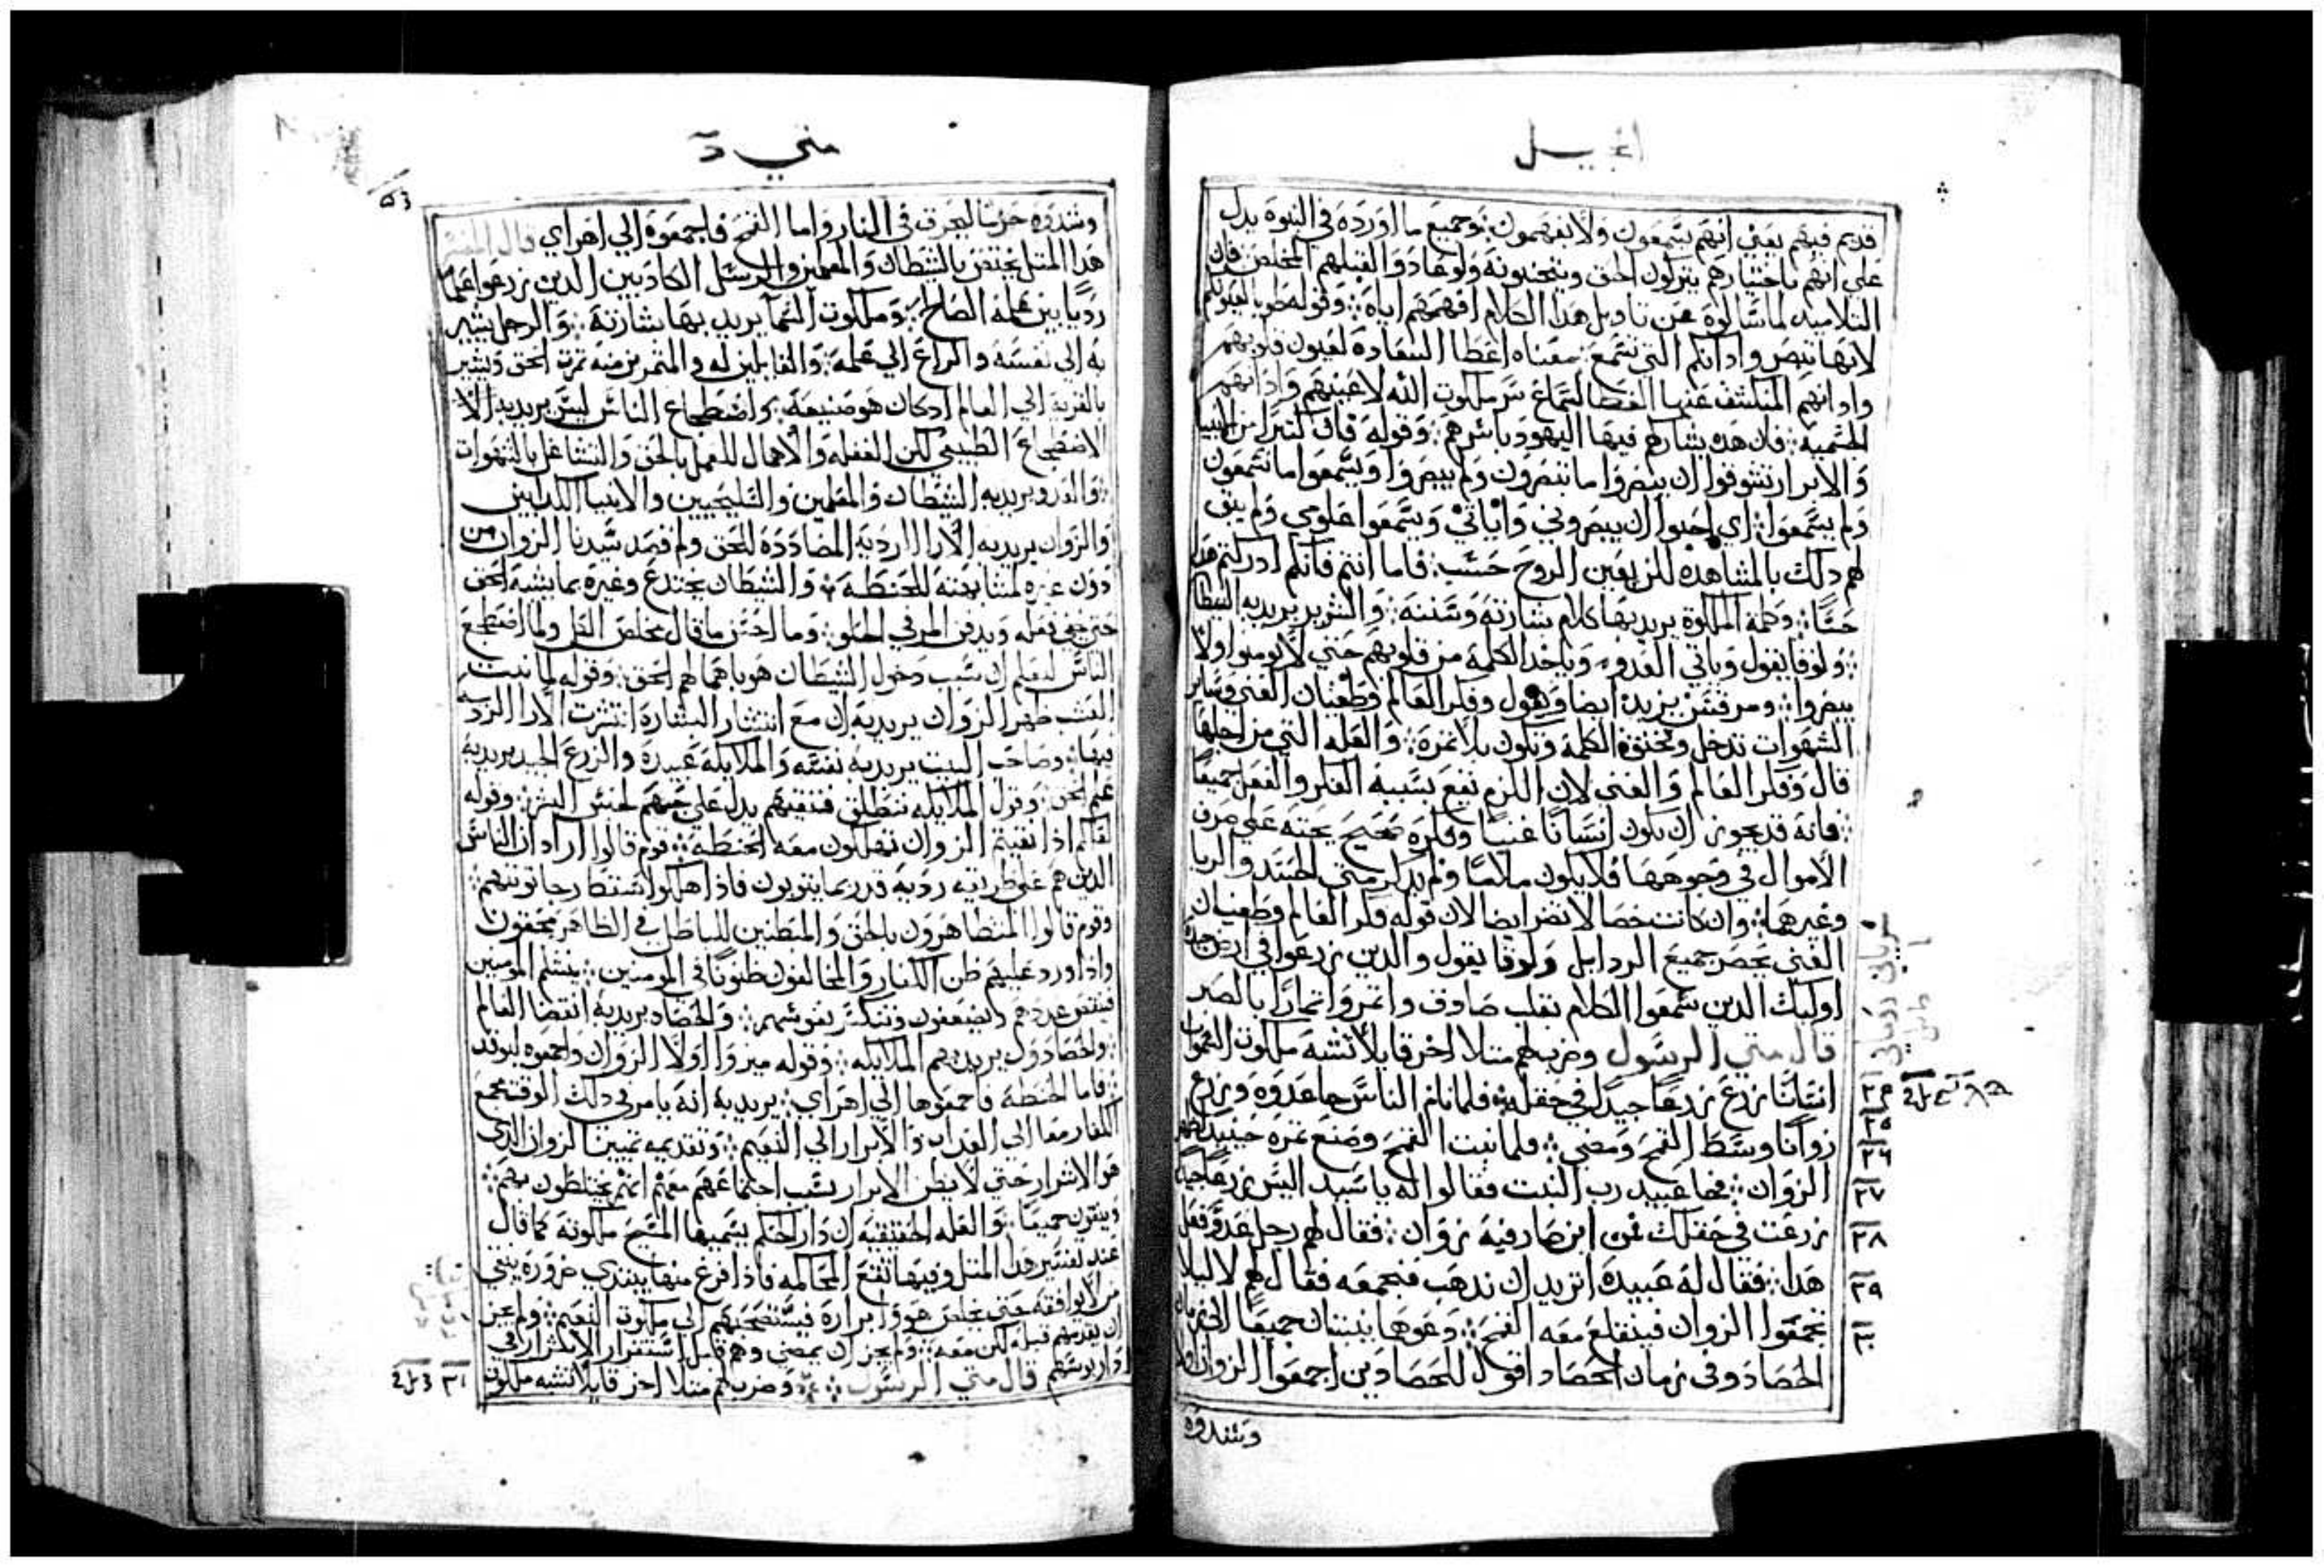 انجيل
قديم فيهم يعني انهم يسمعون ولا يفهمون وجميع ما اورده في النبوة يدل
علي انهم باختيارهم يتركون الحق ويتجنبونه ولو عادوا لقبلهم المخلص فان
التلاميد لما سالوه عن تاويل هدا الكلام افهمهم اياه وقوله طوبا لعيونكم
لانها تبصر وادانكم التي تسمع معناه اعطا السعادة لعيون قلوبهم
وادانهم المنكشف عنها الغطا لسماع سر ملكوت الله لا عينهم وادانهم
الجسمية فان هده يشاركهم فيها اليهود باسرهم وقوله فان كتيرا من الانبيا
والابرار تشوقوا ان يبصروا ما تبصرون ولم يبصروا ويسمعوا ما تسمعون
ولم يسمعوا اي احبوا ان يبصروني واياتي ويسمعوا علومي ولم يتفق
لهم دلك بالمشاهدة لكن بعين الروح حسب فاما انتم فانكم ادركتم هدا
حسا وكلمة الملكوة يريد بها كلام بشارته وسننه والشرير يريد به الشيطان
ولوقا يقول وياتي العدو وياخد الكلمة من قلوبهم حتي لا يومنوا ولا
يبصروا ومرقس يزيد ايضا ويقول وفكر العالم وطغيان الغني وساير
الشهوات تدخل وتخنق الكلمة ويكون بلا تمرة والعلة التي من اجلها
قال وفكر العالم والغني لان اللزم يقع بسببه الفكر والفعل جميعا
فانه قد يجوز ان يكون انسانا غنيا وفكره صحيح يحته علي صرف
الاموال في وجوهها فلا يكون ملاما ولم يدكر متي الحسد والريا
وغيرهما وان كانت خصالا تضر ايضا لان قوله فكر العالم وطغيان
الغني يحصر جميع الردايل ولوقا يقول والدين زرعوا في ارض جيدة
اوليك الدين سمعوا الكلام بقلب صادق واتمروا تمارا بالصبر
قال متي الرسول وضرب لهم متلا اخر قايلا تشبه ملكوت السموات
٢٤ انسانا زرع زرعا جيدا في حقله فلما نام الناس جا عدوه وزرع
٢٥ زوانا وسط القمح ومضي فلما نبت القمح وصنع تمره حينيد ظهر
٢٦
٢٧ الزوان فجا عبيد رب البيت فقالوا له يا سيد اليس زرعا جيدا
٢٨ زرعت في حقلك فمن اين صار فيه زوان فقال لهم رجل عدو فعل
٢٩ هدا فقال له عبيده اتريد ان ندهب فنجمعه فقال لهم لا ليلا
٣٠ تجمعوا الزوان فينقلع معه القمح دعوهما ينبتان جميعا الي زمان
الحصاد وفي زمان الحصاد اقول للحصادين اجمعوا الزوان اولا
وشدوه
متي
وشدوه حزما ليحرق في النار واما القمح فاجمعوه الي اهراي قال المفسر
هدا المتل يختص بالشيطان والمعلمين والرسل الكادبين الدين زرعوا علما
رديا بين علمه الصالح وملكوت السما يريد بها بشارته والرجل يشير
به الي نفسه والزرع الي علمه والقابلين له والمتمرين منه تمرة الحق ويشير
بالقرية الي العالم اد كان هو صنيعه واضطجاع الناس ليس يريد به الا
الاضطجاع الطبيعي لكن الغفله والاهمال للعمل بالحق والتشاغل بالشهوات
والعدو يريد به الشيطان والمعلمين والمسيحيين والانبيا الكدابين
والزوان يريد به الارا الردية المضاددة للحق ولم قصد سيدنا الزوان من
دون غيره لمشابهته للحنطة والشيطان يختدع وغيره بما يشبه الحق
حتي يخفي فعله ويدفن المر في الحلو وما احسن ما قال مخلص الكل ولما اضطجع
الناس ليعلم ان سبب دخول الشيطان هو باهمالهم الحق وقوله لما نبت
العشب ظهر الزوان يريد به ان مع انتشار البشارة انتشرت الارا الردية
فيها وصاحب البيت يريد به نفسه والملايكة عبيده والزرع الجيد يريد به
علم الحق وقول الملايكه ننطلق فننقيهم يدل علي حبهم لجنس البشر وقوله
لعلكم ادا نقيتم الزوان تهلكون معه الحنطه قوم قالوا اراد ان الناس
الدين هم علي طريقه ردية قد ربما يتوبون فادا هلكوا سقط رجا توبتهم
وقوم قالوا المتظاهرون بالحق والمبطنين للباطل في الظاهر يحقون
وادا ورد عليهم ظن الكفار والمخالفون ظنونا في المومنين ينتلم المومنين
فينقص عددهم ويضعفون وتنكسر نفوسهم والحصاد يريد به انقضا العالم
والحصادون يريد بهم الملايكه وقوله ميزوا اولا الزوان واجمعوه ليوقد
فاما الحنطة فاجمعوها الي اهراي يريد به انه يامر في دلك الوقت بجمع
الكفار معا الي العداب والابرار الي النعيم وتقديمه تمييز الزوان الدي
هو الاشرار حتي لا يظن الابرار بسبب اجتماعهم معهم انهم يختلطون بهم
ويبقون جميعا والعله الحقيقيه ان دار الحكم يسميها المسيح ملكوته كما قال
عند تفسير هدا المتل وفيها تقع المحاكمه فادا فرغ منها يبتدي ضرورة ينتي
من لا يوافقه حتي يخلص هو وابراره فيستصحبهم الي ملكوت النعيم ولم يجز
ان يقدمهم قبله لكن معه ولم يجز ان يمضي وهم قبل استقرار الاشرار في
دار بوسهم قال متي الرسول وضرب لهم متلا اخر قايلا تشبه ملكوت ٣١